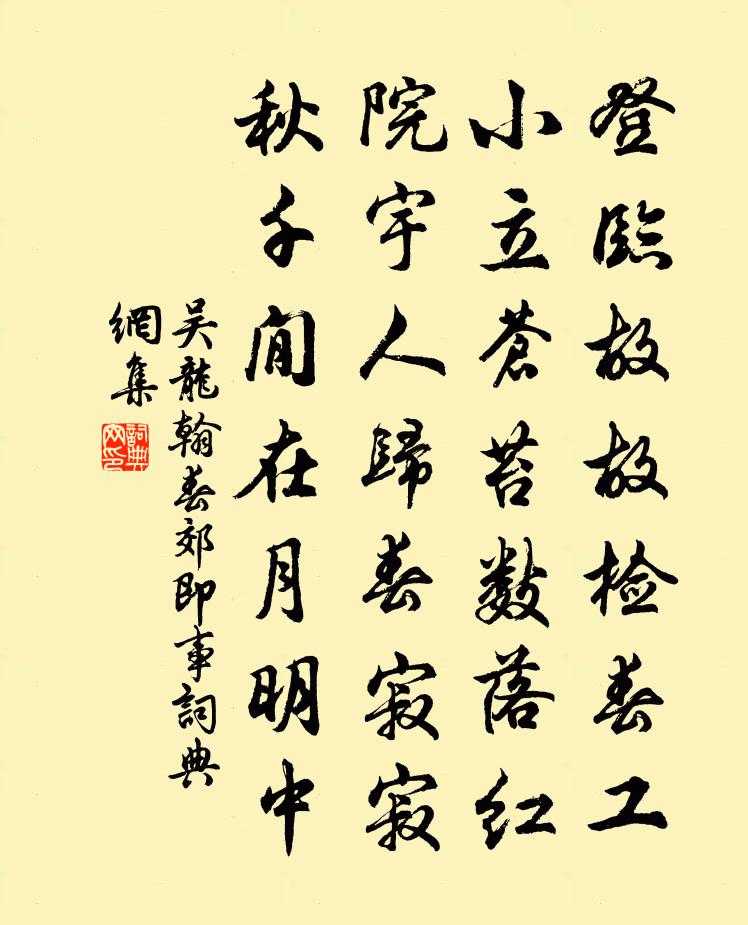 登臨故故檢春工
小立蒼苔數落紅
院宇人歸春寂寂
秋千閒在月明中
吳龍翰春郊即事詞典
網集
詞典網印